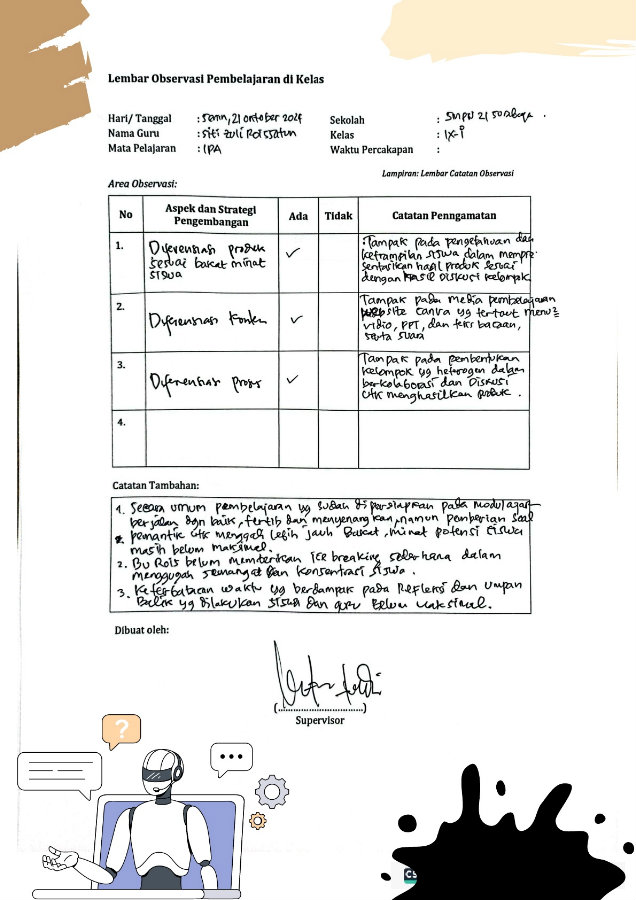 Lembar Observasi Pembelajaran di Kelas
Hari/ Tanggal : Senin, 21 oktober 2024
Sekolah : SMPN 21 Surabaya .
Nama Guru : Siti Zuli Roissatun
Kelas : IX-i
Mata Pelajaran : IPA
Waktu Percakapan :
Lampiran: Lembar Catatan Observasi
Area Observasi:
No Aspek dan Strategi Pengembangan Ada Tidak Catatan Penngamatan
1. Diferensiasi produk
sesuai bakat minat
siswa
✓
Tampak pada pengetahuan dan
ketrampilan siswa dalam mempre
sentasikan hasil produk sesuai
dengan hasil Diskusi kelompok
2. Diferensiasi Konten
✓
Tampak pada media pembelajaran
website canva yg tertaut menu2
vidio, PPT, dan teks bacaan,
serta suara
3. Diferensiasi Proses
✓
Tampak pada pembentukan
kelompok yg heterogen dalam
berkolaborasi dan Diskusi
utk menghasilkan produk .
4.
Catatan Tambahan:
1. Secara umum pembelajaran yg sudah dipersiapkan pada modul ajar
berjalan dgn baik, tertib dan menyenangkan, namun pemberian soal
pemantik utk menggali lebih jauh Bakat, minat potensi siswa
masih belum maksimal.
2. Bu Rois belum memberikan ice breaking sederhana dalam
menggugah semangat dan konsentrasi siswa .
3. Keterbatasan waktu yg berdampak pada Refleksi dan umpan
Balik yg dilakukan siswa dan guru Belum maksimal.
Dibuat oleh:
(..............................)
Supervisor
?
CS